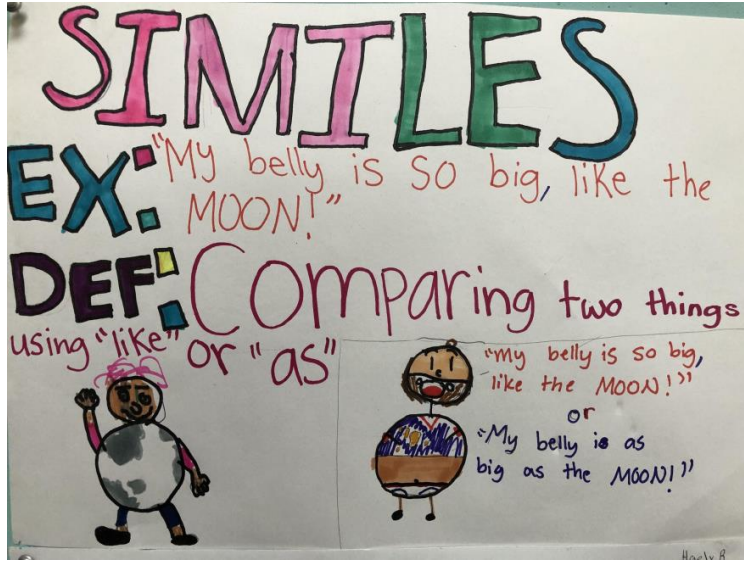 SIMILES
EX: "My belly is so big, like the
MOON!"
DEF: Comparing two things
using "like" or "as"
"my belly is so big,
like the MOON!"
or
"My belly is as
big as the MOON!"